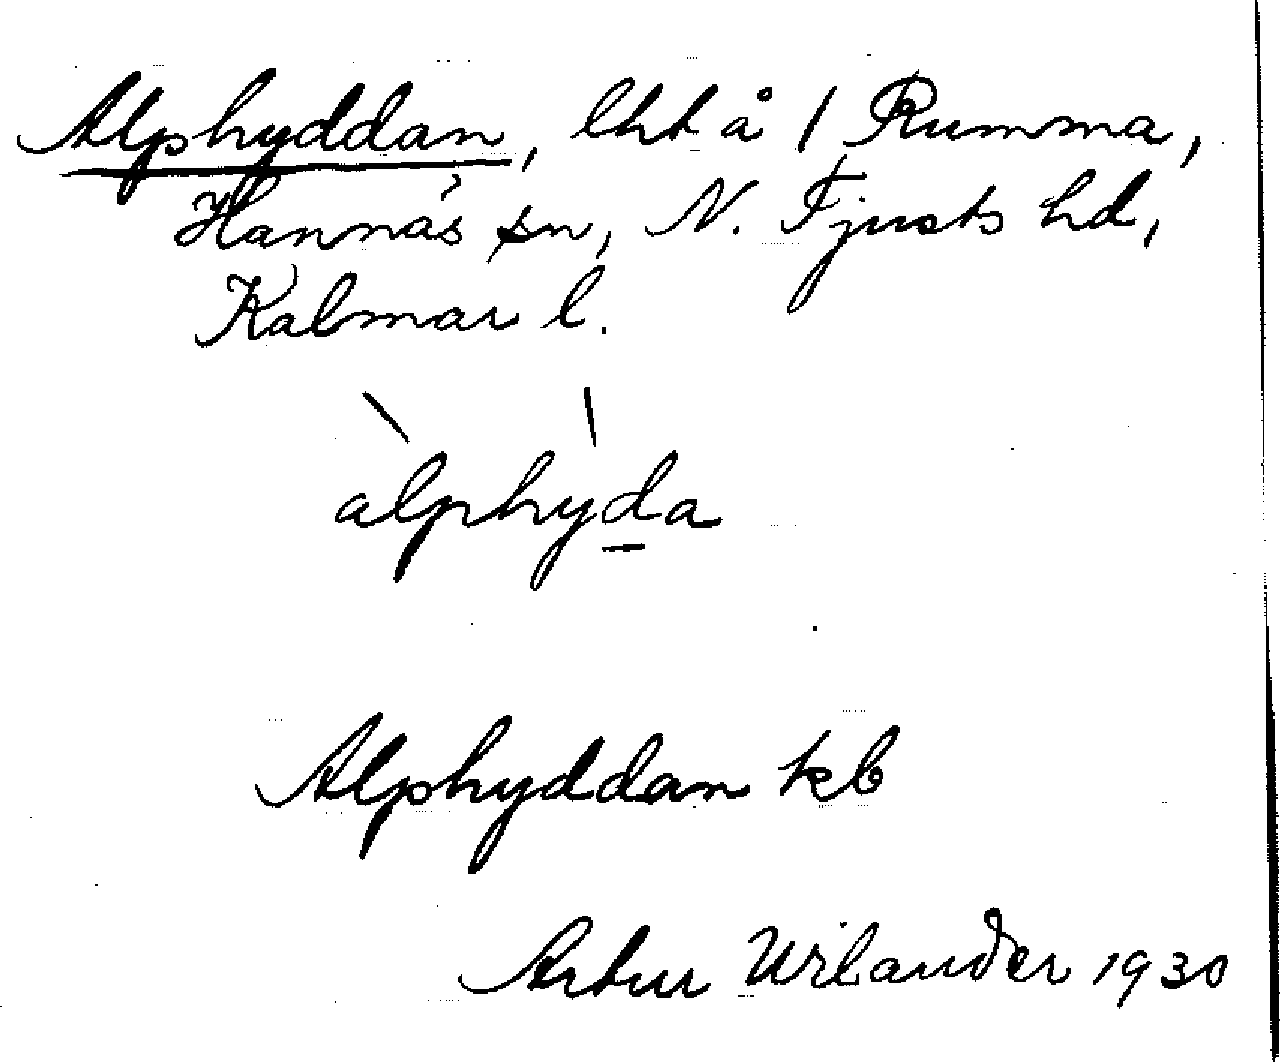 Alphyddan, lht å / Rumma,
Hannäs sn, N. Tjusts hd,
Kalmar l.
àlphy̍da
Alphyddan kb
Artur Wilander 1930